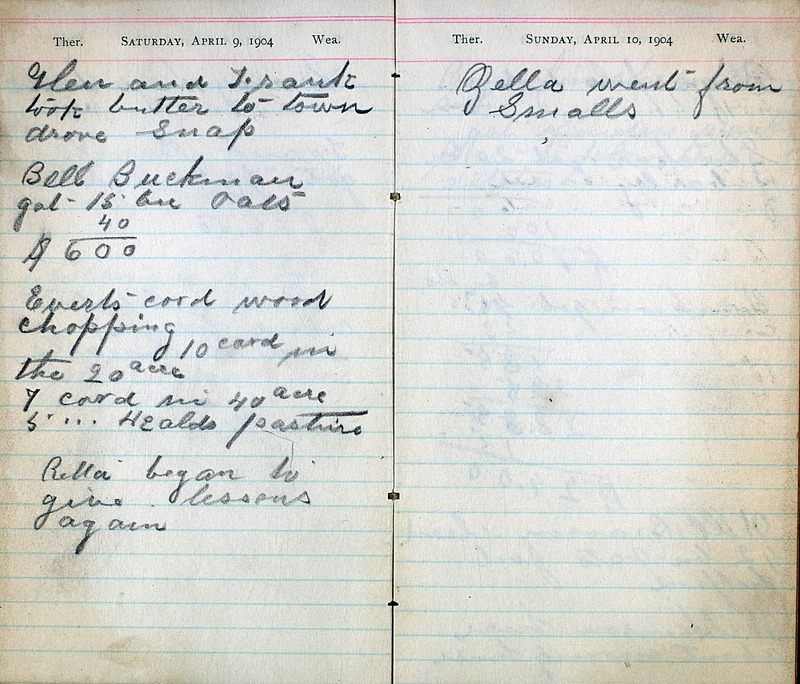 Ther. SATURDAY, APRIL 9, 1904 Wea.
Glen and Frank
took butter to town
drove Snap
Bell Buckman
got 15 bu Oats
40
$ 600
Everts cord wood
chopping
10 cord in
the 20 acre
7 cord in 40 acre
5 " " Healds pasture
Rella began to
give lessons
again
Ther. SUNDAY, APRIL 10, 1904 Wea.
Rella went from
Smalls